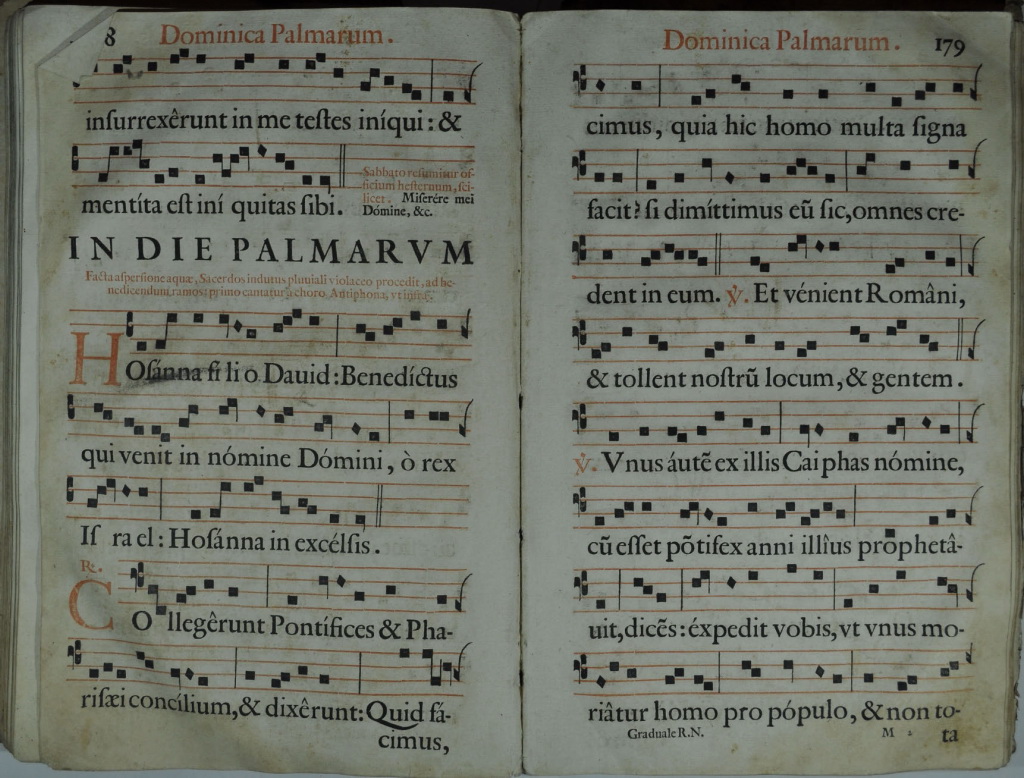 8 Dominica Palmarum.
insurrexêrunt in me testes iníqui: &
mentíta est iní quitas sibi.
Sabbato resumitur of-
ficium hesternum, sci-
licet. Miserére mei
Dómine, &c.
IN DIE PALMARVM
Facta aspersione aquæ, Sacerdos indutus pluuiali violaceo procedit, ad be-
nedicendum ramos: primo cantatur à choro Antiphona, vt infra.
HOsánna fi li o Dauid: Benedíctus
qui venit in nómine Dómini, ò rex
Is ra el: Hosánna in excélsis.
R.
CO llegêrunt Pontífices & Pha-
risæi concílium, & dixêrunt: Quid fá-
cimus,
Dominica Palmarum. 179
cimus, quia hic homo multa signa
facit? si dimíttimus eū sic, omnes cre-
dent in eum. ℣. Et vénient Români,
& tollent nostrū locum, & gentem.
℣. Vnus áutē ex illis Caiphas nómine,
cū esset põtifex anni illîus prophetâ-
uit, dicēs: éxpedit vobis, vt vnus mo-
riâtur homo pro pópulo, & non to-
Graduale R.N. M 2 ta